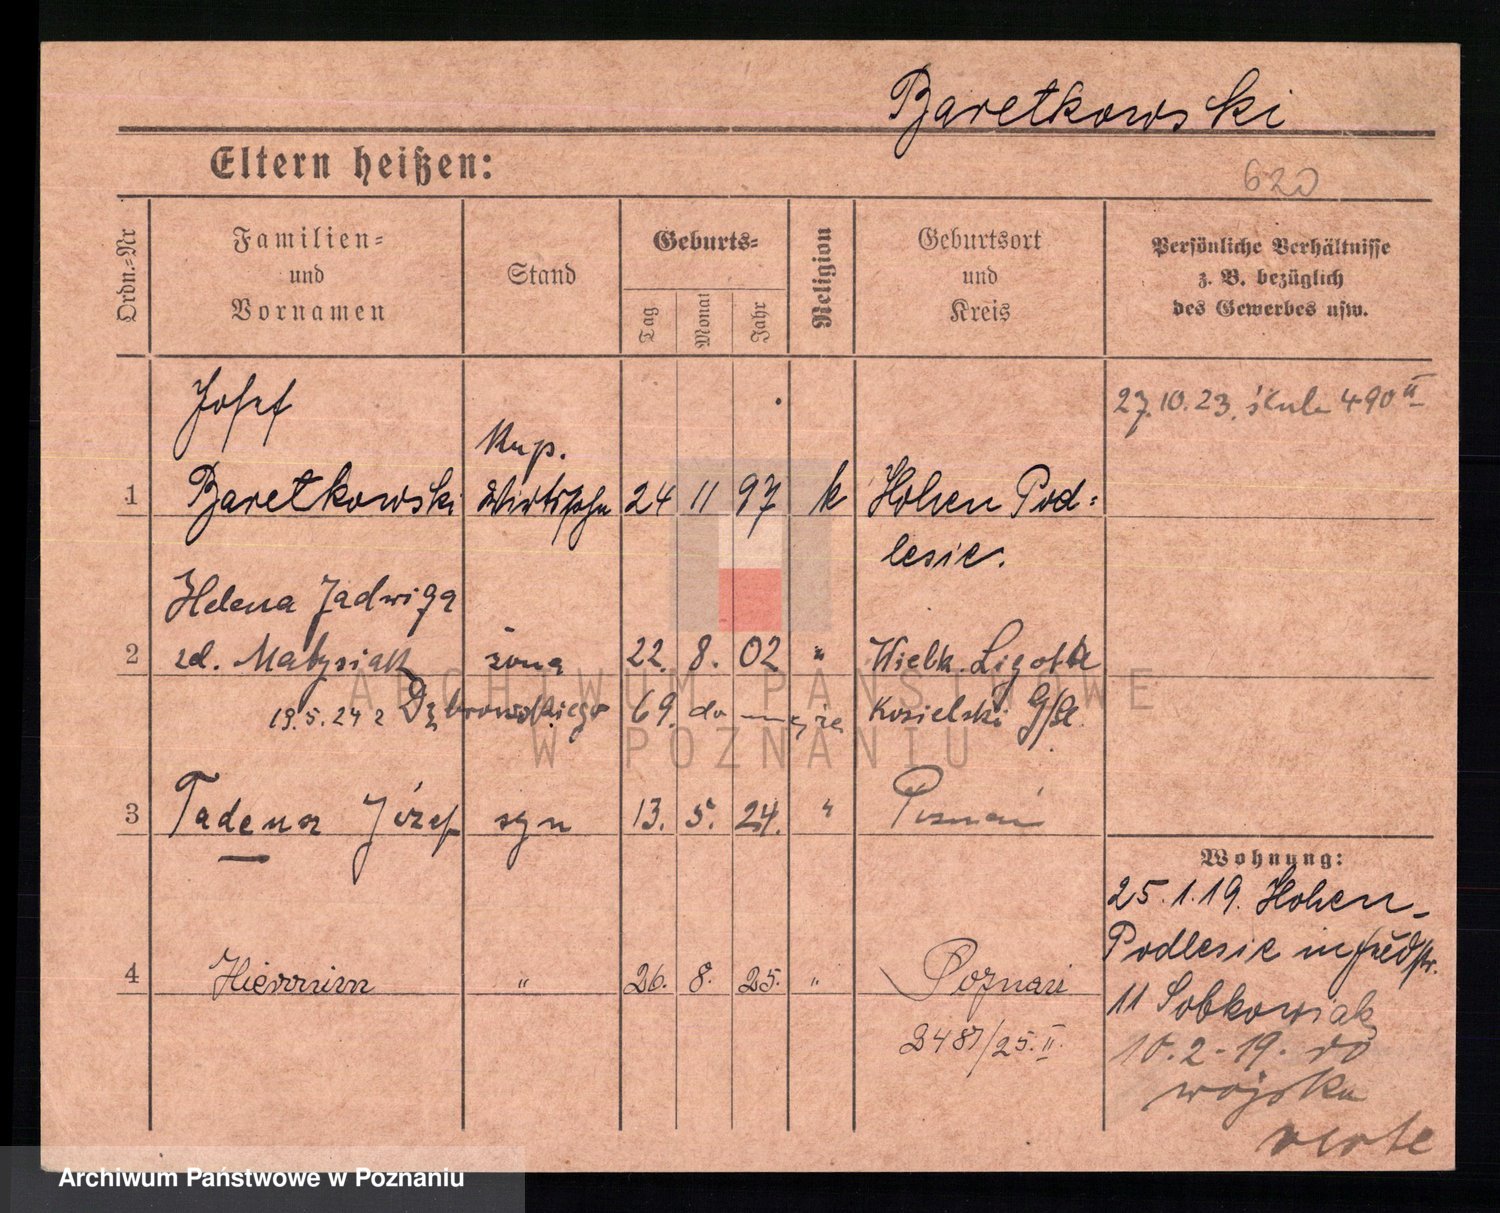 Baretkowski
Eltern heißen:
620
Ordn.=Nr
Familien=
und
Vornamen
Stand
Geburts=
Tag
Monat
Jahr
Religion
Geburtsort
und
Kreis
Persönliche Verhältnisse
z. B. bezüglich
des Gewerbes usw.
Josef
27.10.23. 490 II
Kup.
1 Baretkowski Wirtssohn 24 11 97 k Hohen Pod=
lesie.
Helena Jadwiga
2 zd. Matysiak żona 22. 8. 02 " Wielk. Ligotta
19.5.24 z Dąbrowskiego 69. do Kosielski G/Sl.
3 Tadeusz Józef syn 13. 5. 24. " Poznań
Wohnung:
25.1.19. Hohen-
Podlesie in
4 Hieronim " 26. 8. 25. " Poznań
11 Sobkowiak
2487/25. II.
10.2.19. do
wojska
verte
ARCHIWUM PAŃSTWOWE
W POZNANIU
Archiwum Państwowe w Poznaniu